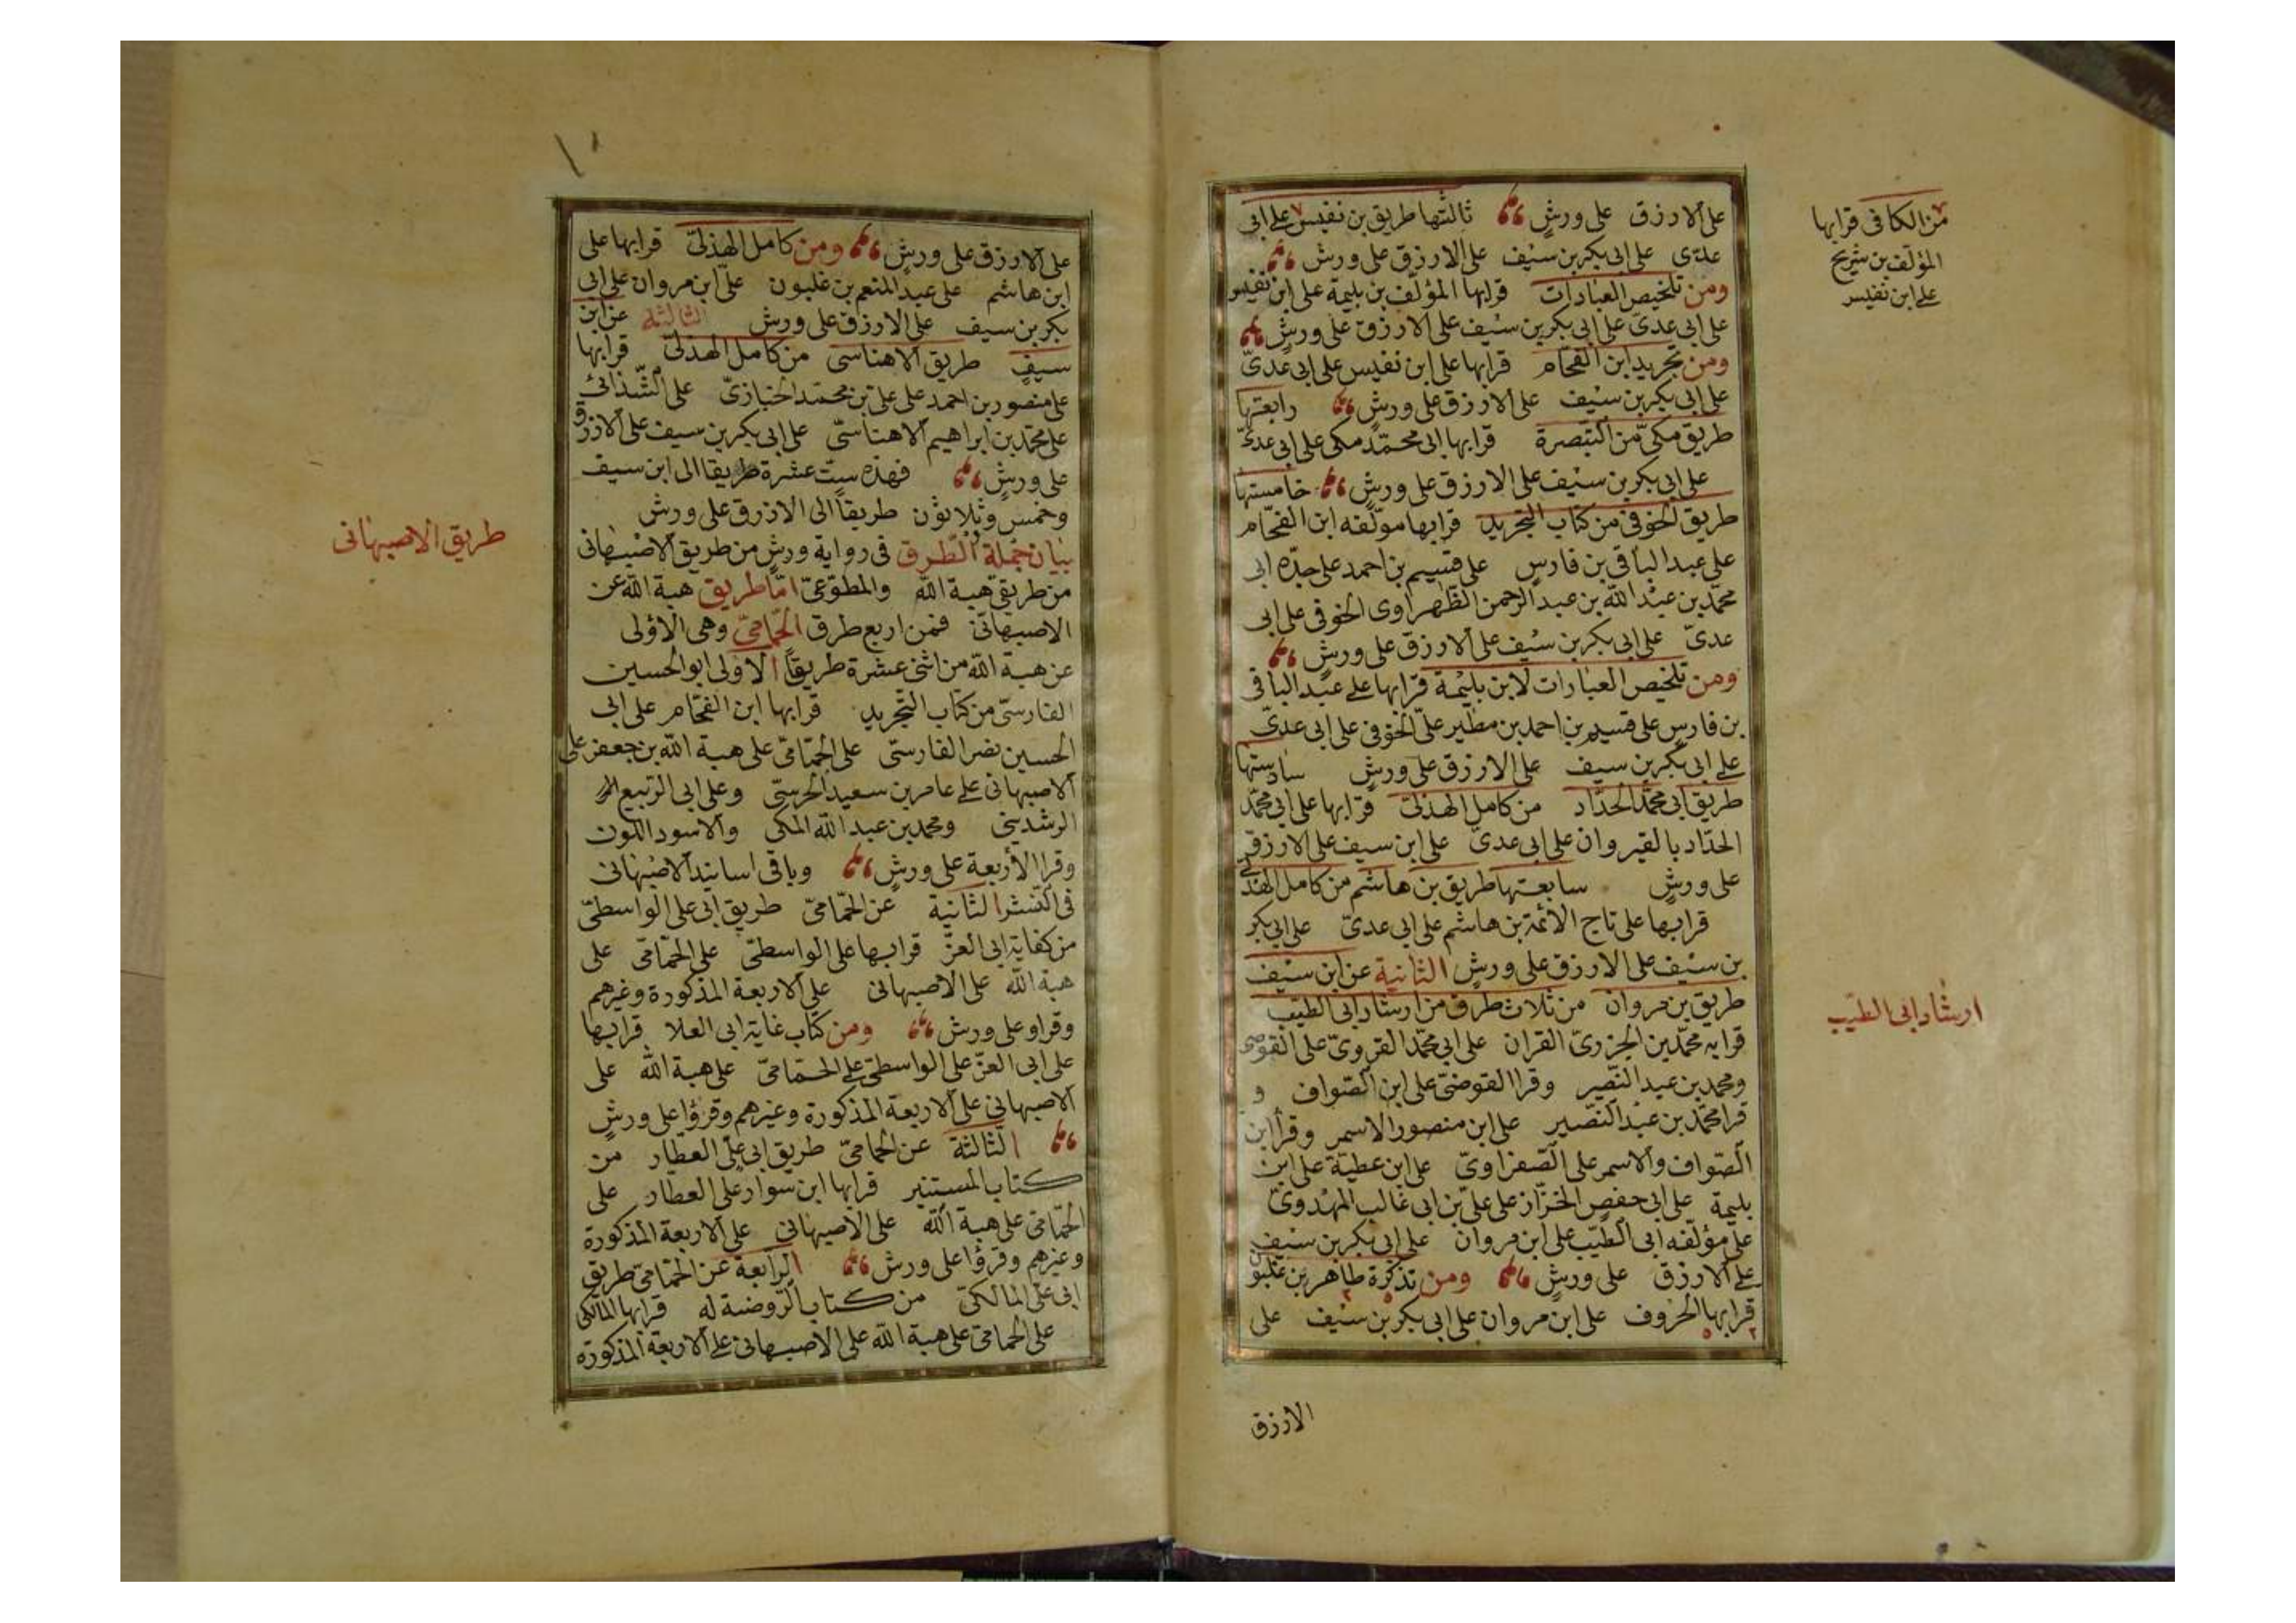 على الازرق على ورش ثالثتها طريق بن نفيس على ابى
عدى على ابى بكر بن سيف على الازرق على ورش
ومن تلخيص العبارات قرابها المؤلف بن بليمة على ابن نفيس
على ابى عدى على ابى بكر بن سيف على الازرق على ورش
ومن تجريد ابن الفحام قرابها على ابن نفيس على ابى عدى
على ابى بكر بن سيف على الازرق على ورش رابعتها
طريق مكى من التبصرة قرابها ابى محمد مكى على ابى عدى
على ابى بكر بن سيف على الازرق على ورش خامستها
طريق الحوفى من كتاب التجريد قرابها مؤلفه ابن الفحام
على عبد الباقى بن فارس على قسيم بن احمد على جده ابى
محمد بن عبد الله بن عبد الرحمن الظهراوى الحوفى على ابى
عدى على ابى بكر بن سيف على الازرق على ورش
ومن تلخيص العبارات لابن بليمة قرابها على عبد الباقى
بن فارس على قسيم بن احمد بن مطير على الحوفى على ابى عدى
على ابى بكر بن سيف على الازرق على ورش سادستها
طريق ابى محمد الحداد من كامل الهذلى قرابها على ابى محمد
الحداد بالقيروان على ابى عدى على ابن سيف على الازرق
على ورش سابعتها طريق بن هاشم من كامل الهذلى
قرابها على تاج الائمة بن هاشم على ابى عدى على ابى بكر
بن سيف على الازرق على ورش الثانية عن ابن سيف
طريق بن مروان من ثلاث طرق من ارشاد ابى الطيب
قرابه محمد بن الجزرى القران على ابى محمد القروى على القوصى
ومحمد بن عبد النصير وقرا القوضى على ابن الصواف و
قرا محمد بن عبد النصير على ابن منصور الاسمر وقرأ ابن
الصواف والاسمر على الصفراوى على ابن عطية على ابن
بليمة على ابى حفص الخزاز على على بن ابى غالب المهدوى
على مؤلفه ابى الطيب على ابن مروان على ابى بكر بن سيف
على الازرق على ورش ومن تذكرة طاهر بن غلبون
قرابها الحروف على ابن مروان على ابى بكر بن سيف على
الازرق
من الكافى قرابها
المؤلف بن شريح
على ابن نفيس
ارشاد ابى الطيب
على الازرق على ورش ومن كامل الهذلى قرابها على
ابن هاشم على عبد المنعم بن غلبون على ابن مروان على ابى
بكر بن سيف على الازرق على ورش الثالثة عن ابن
سيف طريق الاهناسى من كامل الهذلى قرابها
على منصور بن احمد على على بن محمد الخبازى على الشذائى
على محمد بن ابراهيم الاهناسى على ابى بكر بن سيف على الازرق
على ورش فهذه ست عشرة طريقا الى ابن سيف
وخمس وثلاثون طريقا الى الازرق على ورش
بيان جملة الطرق فى رواية ورش من طريق الاصبهانى
من طريقى هبة الله والمطوعى اما طريق هبة الله عن
الاصبهانى فمن اربع طرق الحمامى وهى الاولى
عن هبة الله من اثنى عشرة طريقا الاولى ابو الحسين
الفارسى من كتاب التجريد قرابها ابن الفحام على ابى
الحسين نصر الفارسى على الحمامى على هبة الله بن جعفر على
الاصبهانى على عامر بن سعيد الحرسى وعلى ابى الربيع
الرشدينى ومحمد بن عبد الله المكى والاسود اللون
وقرا الأربعة على ورش وباقى اسانيد الاصبهانى
فى النشر الثانية عن الحمامى طريق ابى على الواسطى
من كفاية ابى العز قرابها على الواسطى على الحمامى على
هبة الله على الاصبهانى على الاربعة المذكورة وغيرهم
وقراو على ورش ومن كتاب غاية ابى العلا قرابها
على ابى العز على الواسطى على الحمامى على هبة الله على
الاصبهانى على الاربعة المذكورة وغيرهم وقرؤا على ورش
الثالثة عن الحمامى طريق ابى على العطار من
كتاب المستنير قرابها ابن سوار على العطار على
الحمامى على هبة الله على الاصبهانى على الاربعة المذكورة
وغيرهم وقرؤا على ورش الرابعة عن الحمامى طريق
ابى على المالكى من كتاب الروضة له قرابها المالكى
على الحمامى على هبة الله على الاصبهانى على الاربعة المذكورة
طريق الاصبهانى